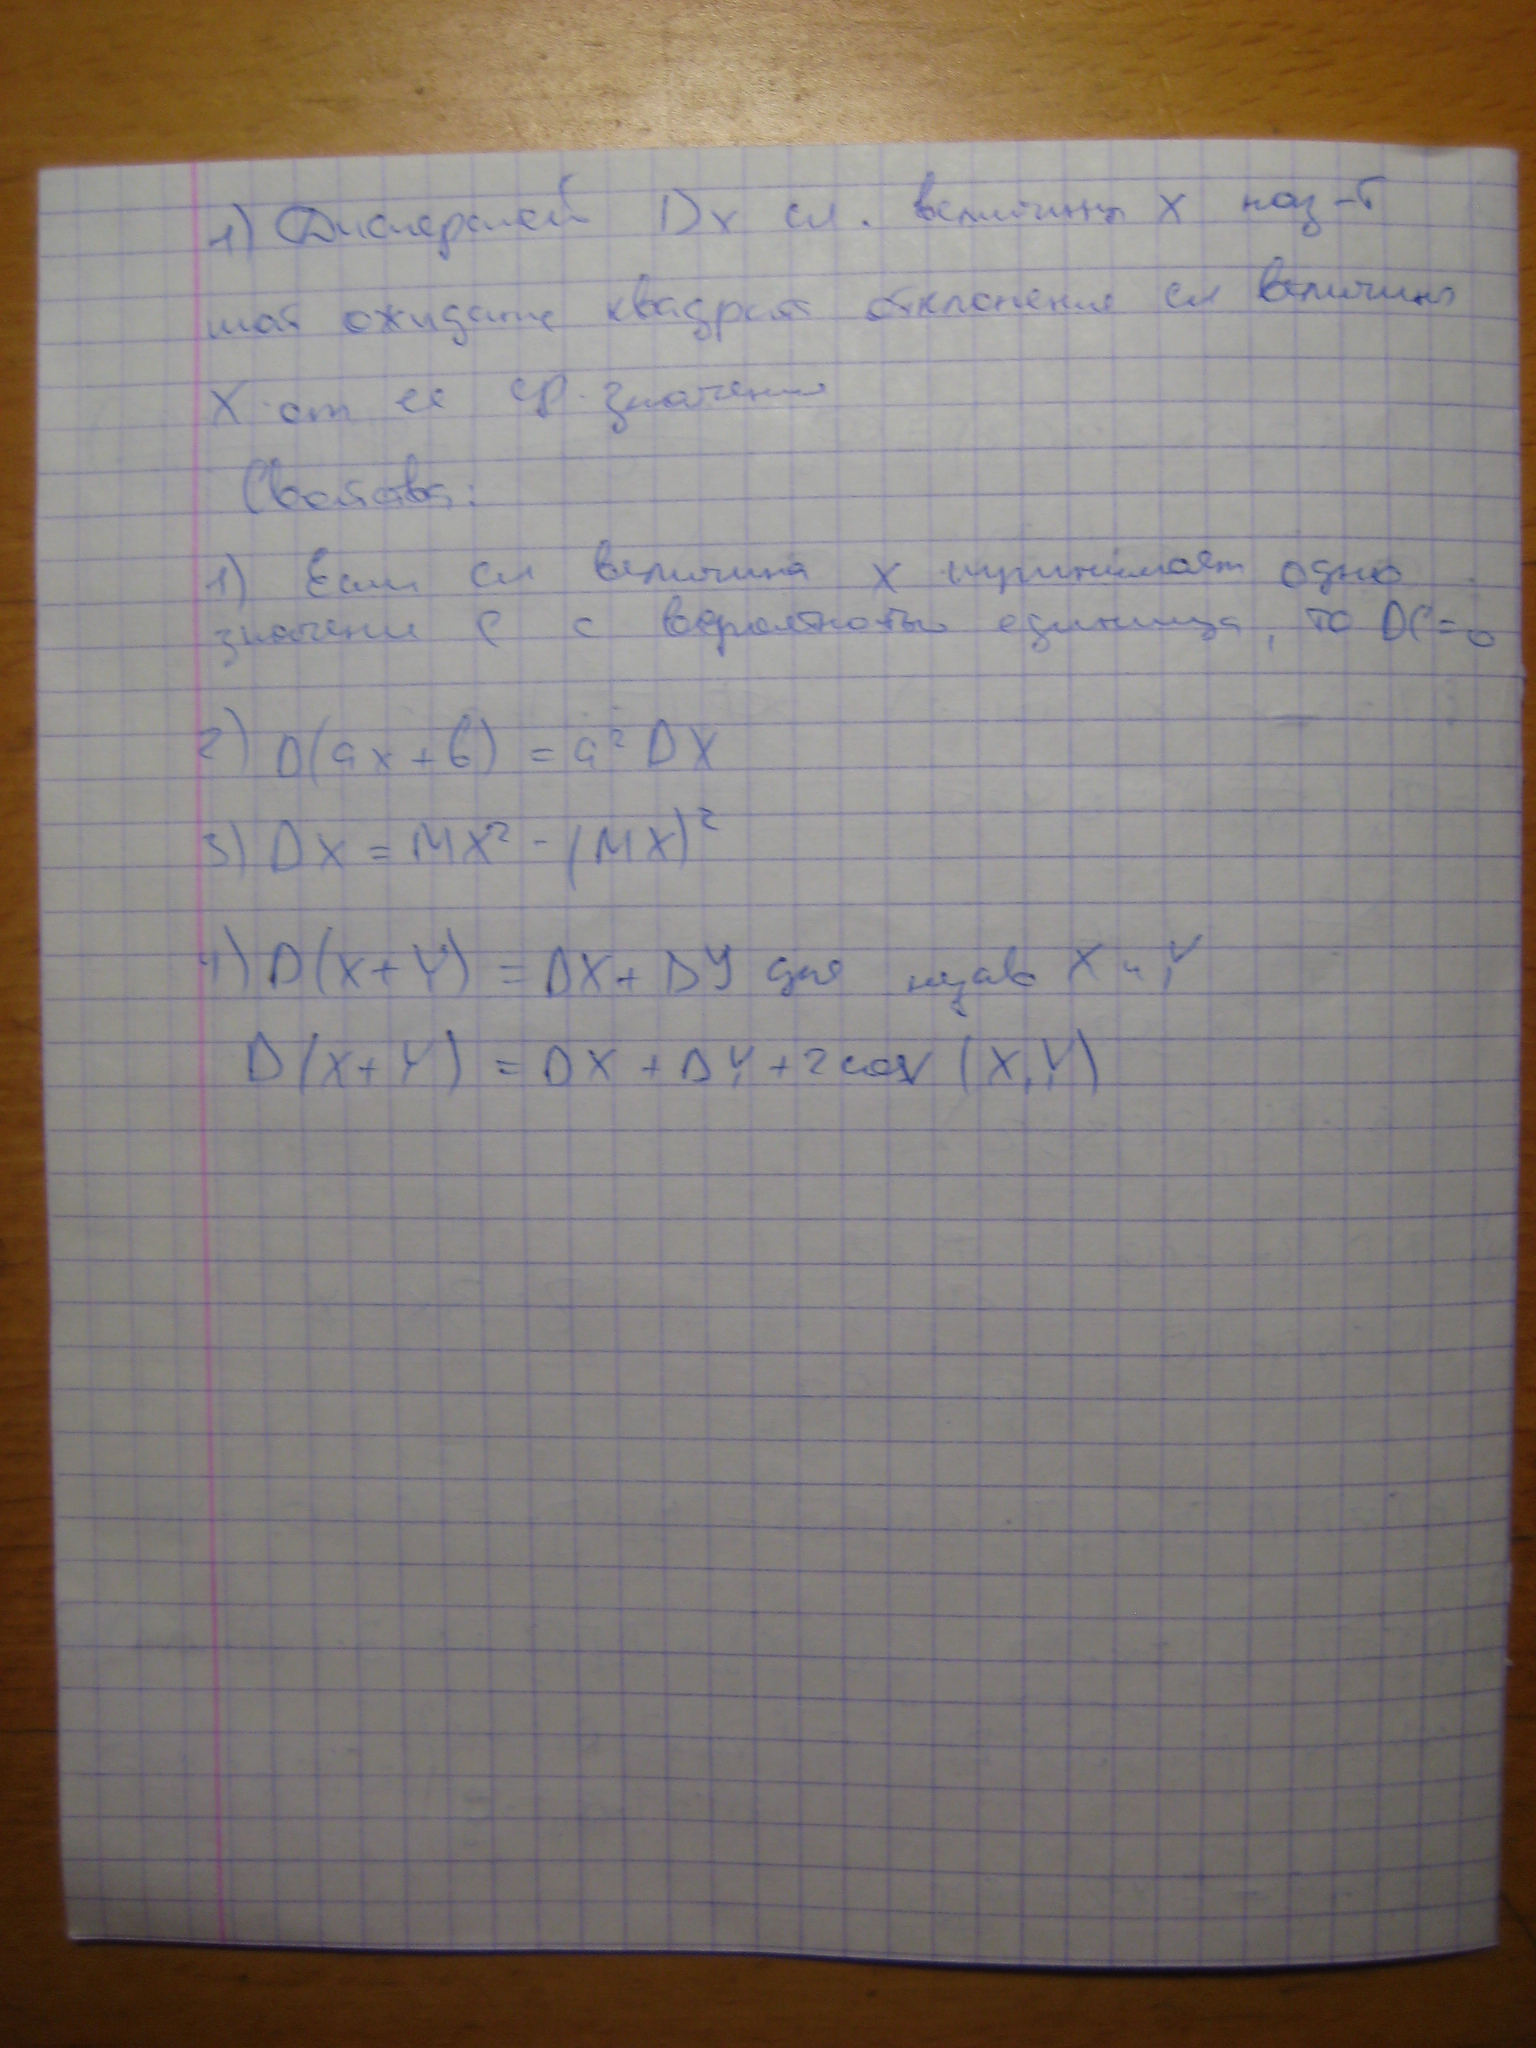 1) Дисперсией Dx сл. величины X наз-т
мат ожидание квадрат отклонения сл величины
X от ее ср. значения
Свойства:
1) Если сл величина X принимает одно
значение C с вероятностью единица, то DC=0
2) D(ax+b) = a² DX
3) DX = MX² - (MX)²
4) D(X+Y) = DX + DY для незав X и Y
D(X+Y) = DX + DY + 2cov (X,Y)